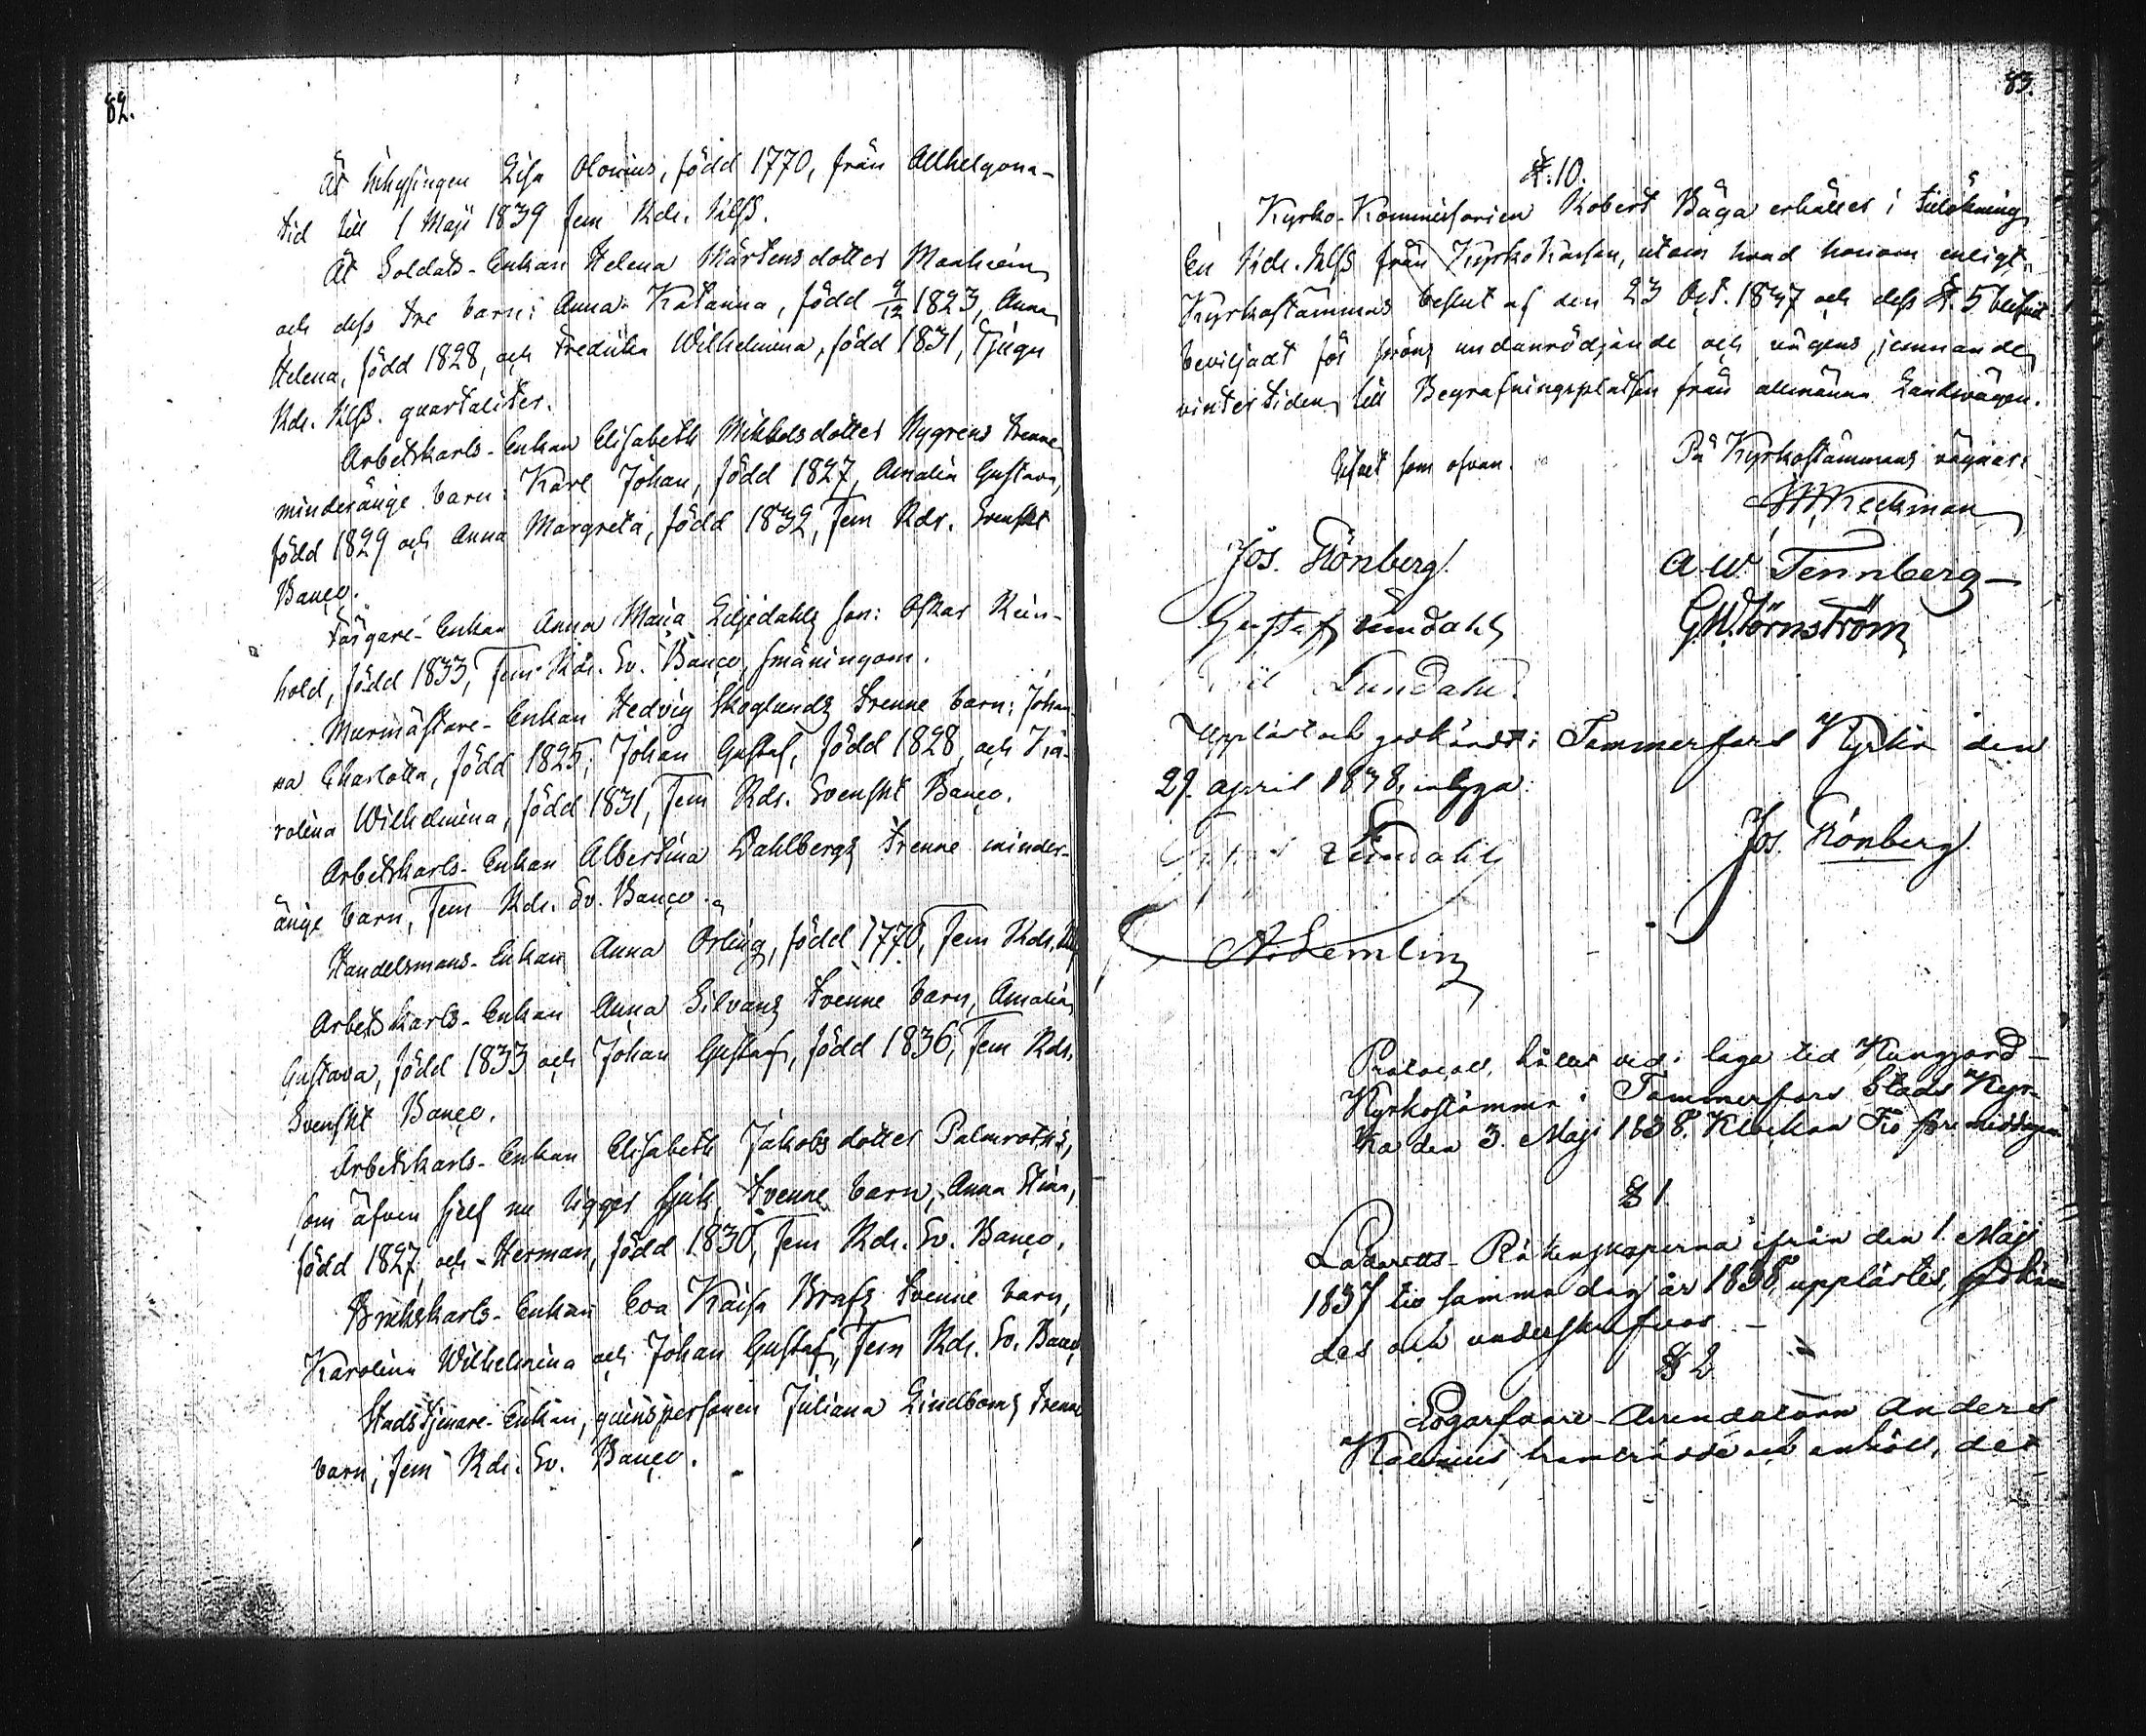 82.
Åt Inhysingen Lisa Olonius, född 1770, från Allhelgona-
tid till 1 Maji 1839 fem Rdr. Rgss.
Åt Soldats-Enkan Helena Mårtensdotter Manheim
och dess tre barn: Anna Katarina, född 9/12 1823, Anna
Helena, född 1828, och Fredrika Wilhelmina, född 1831, Tjugu
Rdr. Rgss. quartaliter.
Arbetskarls-Enkan Elisabeth Mikkelsdotter Nygrens trenne
minderårige barn: Karl Johan, född 1827, Amalia Gustava,
född 1829 och Anna Margreta, född 1832, fem Rdr. Svenskt
Banco.
Färgare-Enkan Anna Maria Liljedahls son: Oskar Rein-
hold, född 1833, fem Rdr. Sv. Banco, småningom.
Murmästare-Enkan Hedvig Skoglunds trenne barn: Johan-
na Charlotta, född 1825, Johan Gustaf, född 1828, och Ka-
rolina Wilhelmina, född 1831, fem Rdr. Svenskt Banco.
Arbetskarls-Enkan Albertina Dahlbergs trenne minder-
årige barn, fem Rdr. Sv. Banco.
Handelsmans-Enkan Anna Örling, född 1770, fem Rdr.
Arbetskarls-Enkan Anna Silvans tvenne barn, Amalia
Gustava, född 1833 och Johan Gustaf, född 1836, fem Rdr.
Svenskt Banco.
Arbetskarls-Enkan Elisabeth Jakobsdotter Palmroths,
som äfven sjelf nu ligger sjuk, tvenne barn, Anna Stina,
född 1827, och Herman, född 1830, fem Rdr. Sv. Banco.
Brukskarls-Enkan Eva Kaisa Brafs tvenne barn,
Karolina Wilhelmina och Johan Gustaf, fem Rdr. Sv. Banco
Stadstjenare-Enkan, Juliana Lindboms trenne
barn, fem Rdr. Sv. Banco.
83.
§. 10.
Kyrko-Kommissarien Robert Båga erhåller i tillökning
En Rdr. Rgss från Kyrko Kassan, utom hvad honom enligt
Kyrkostämmas beslut af den 23 Oct. 1837 och dess §. 5 blifvit
beviljadt för snöns undanrödjande och vägens jemnande
vintertiden till Begrafningsplatsen från allmänna Landsvägen.
Gifvet som ofvan. På Kyrkostämmans vägnar:
Jos. Grönberg. A. W. Tennberg
Gustaf Sundahl G. W. Törnström
Sundahl.
Uppläst och godkändt i Tammerfors Kyrka den
29. April 1838, intyga:
Sundahl Jos. Grönberg
A. Lemlin
Protocoll, hållet vid i laga tid Kungjord
Kyrkostämma i Tammerfors Stads Kyr-
ka den 3. Maji 1838. Klockan Tio förmiddagen
§ 1.
Lazaretts-Räkenskaperna ifrån den 1. Maji
1837 till samma dag år 1838 upplästes, godkän-
des och underskrefvos. –
§ 2
Arrendatorn Anders
och anhöll, det